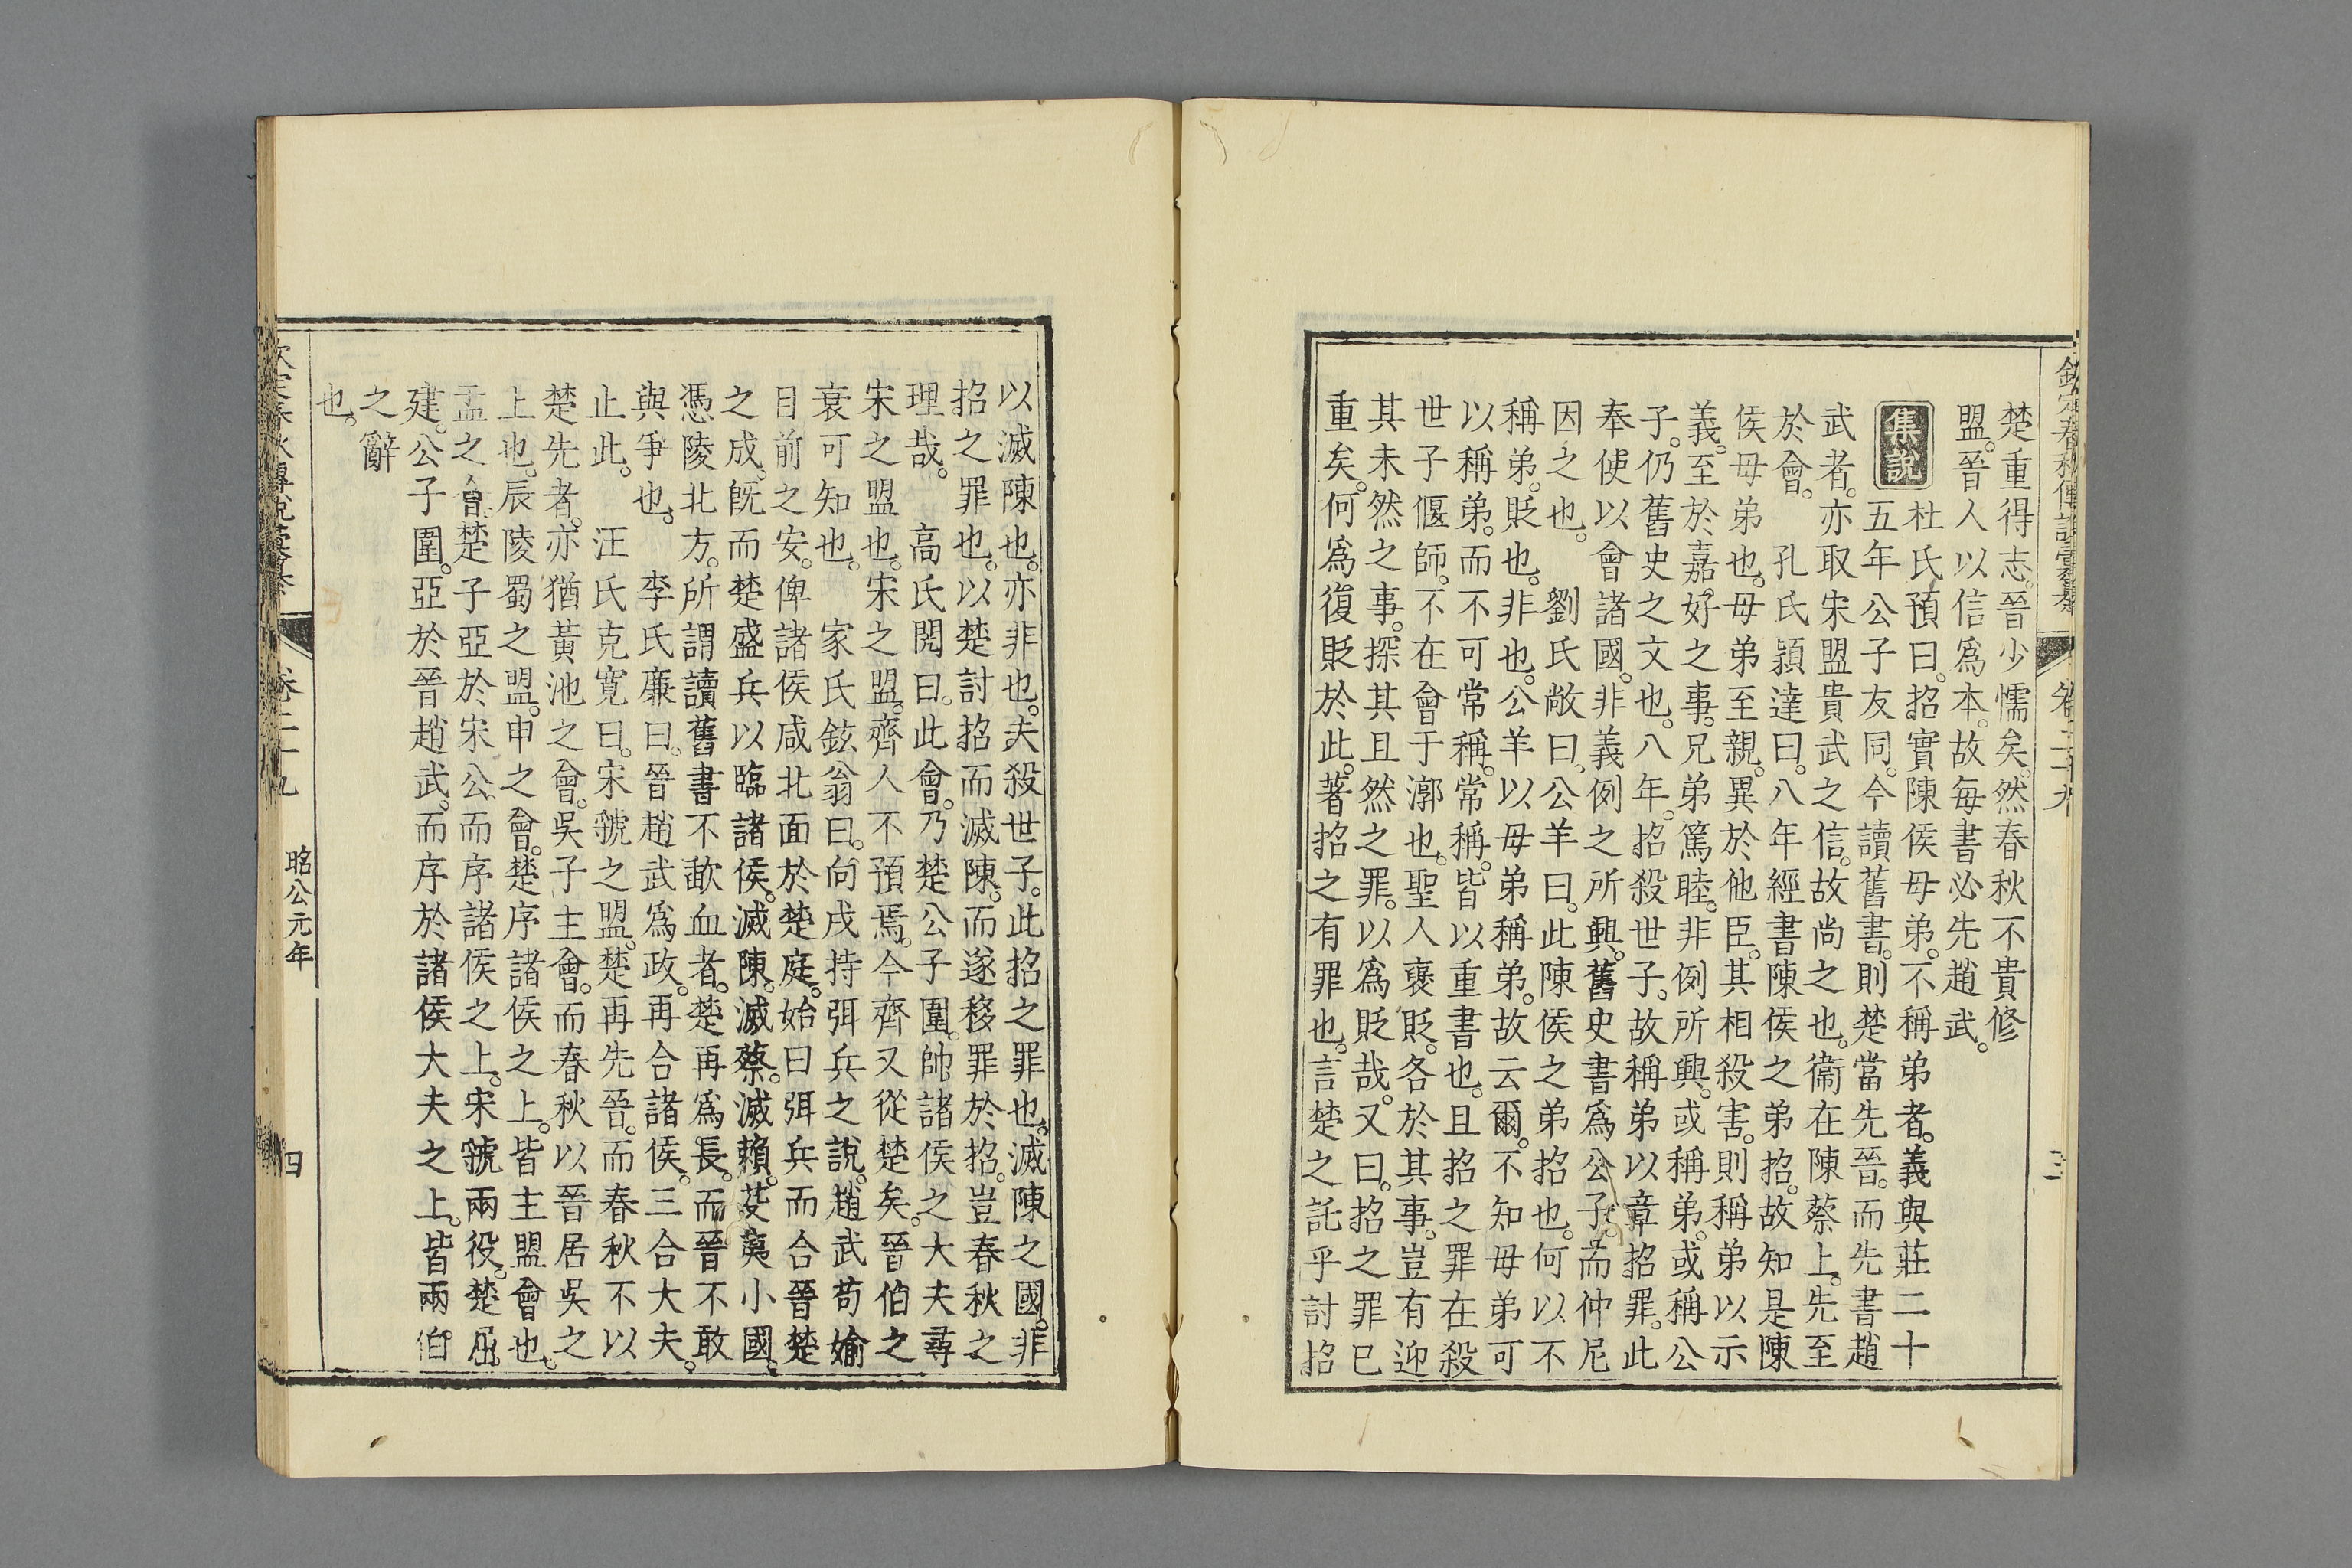 欽定春秋傳說彙纂 卷二十九 三
楚重得志。晉少懦矣。然春秋不貴修
盟。晉人以信爲本。故每書必先趙武。
集說
杜氏預曰。招實陳侯母弟。不稱弟者。義與莊二十
五年公子友同。今讀舊書。則楚當先晉。而先書趙
武者。亦取宋盟貴武之信。故尚之也。衞在陳蔡上。先至
於會。 孔氏穎達曰。八年經書陳侯之弟招。故知是陳
侯母弟也。母弟至親。異於他臣。其相殺害。則稱弟以示
義。至於嘉好之事。兄弟篤睦。非例所興。或稱弟。或稱公
子。仍舊史之文也。八年。招殺世子。故稱弟以章招罪。此
奉使以會諸國。非義例之所興。舊史書爲公子。而仲尼
因之也。 劉氏敞曰。公羊曰。此陳侯之弟招也。何以不
稱弟。貶也。非也。公羊以母弟稱弟。故云爾。不知母弟可
以稱弟。而不可常稱。常稱。皆以重書也。且招之罪在殺
世子偃師。不在會于漷也。聖人褒貶。各於其事。豈有迎
其未然之事。探其且然之罪。以爲貶哉。又曰。招之罪已
重矣。何爲復貶於此。著招之有罪也。言楚之託乎討招
以滅陳也。亦非也。夫殺世子。此招之罪也。滅陳之國。非
招之罪也。以楚討招而滅陳。而遂移罪於招。豈春秋之
理哉。 高氏閌曰。此會。乃楚公子圍。帥諸侯之大夫尋
宋之盟也。宋之盟。齊人不預焉。今齊又從楚矣。晉伯之
衰可知也。 家氏鉉翁曰。向戌持弭兵之說。趙武苟婾
目前之安。俾諸侯咸北面於楚庭。始曰弭兵而合晉楚
之成。旣而楚盛兵以臨諸侯。滅陳。滅蔡。滅賴。芟荑小國。
憑陵北方。所謂讀舊書不歃血者。楚再爲長。而晉不敢
與爭也。 李氏廉曰。晉趙武爲政。再合諸侯。三合大夫。
止此。 汪氏克寬曰。宋虢之盟。楚再先晉。而春秋不以
楚先者。亦猶黃池之會。吳子主會。而春秋以晉居吳之
上也。辰陵蜀之盟。申之會。楚序諸侯之上。皆主盟會也。
盂之會。楚子亞於宋公。而序諸侯之上。宋虢兩役。楚屈
建。公子圍。亞於晉趙武。而序於諸侯大夫之上。皆兩伯
之辭
也。
欽定春秋傳說彙纂 卷二十九 昭公元年 四